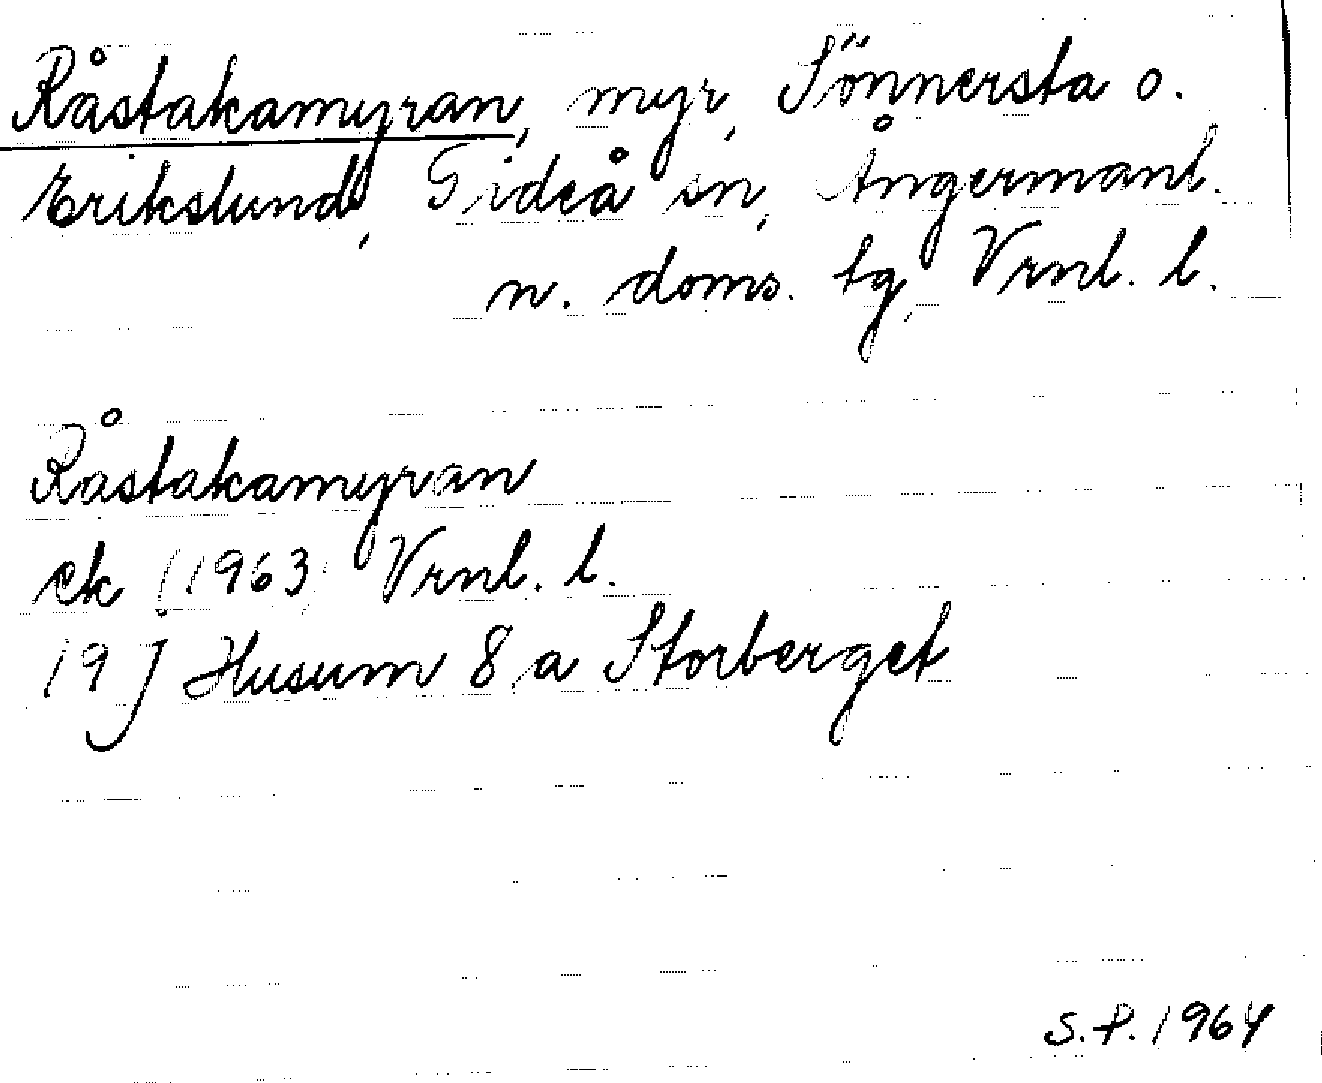 Råstakamyran, myr, Sönnersta o.
Erikslund, Gideå sn, Ångermanl.
n. doms. tg, Vrnl. l.
Råstakamyran
ek (1963) Vrnl. l.
19 J Husum 8 a Storberget
S.P. 1964